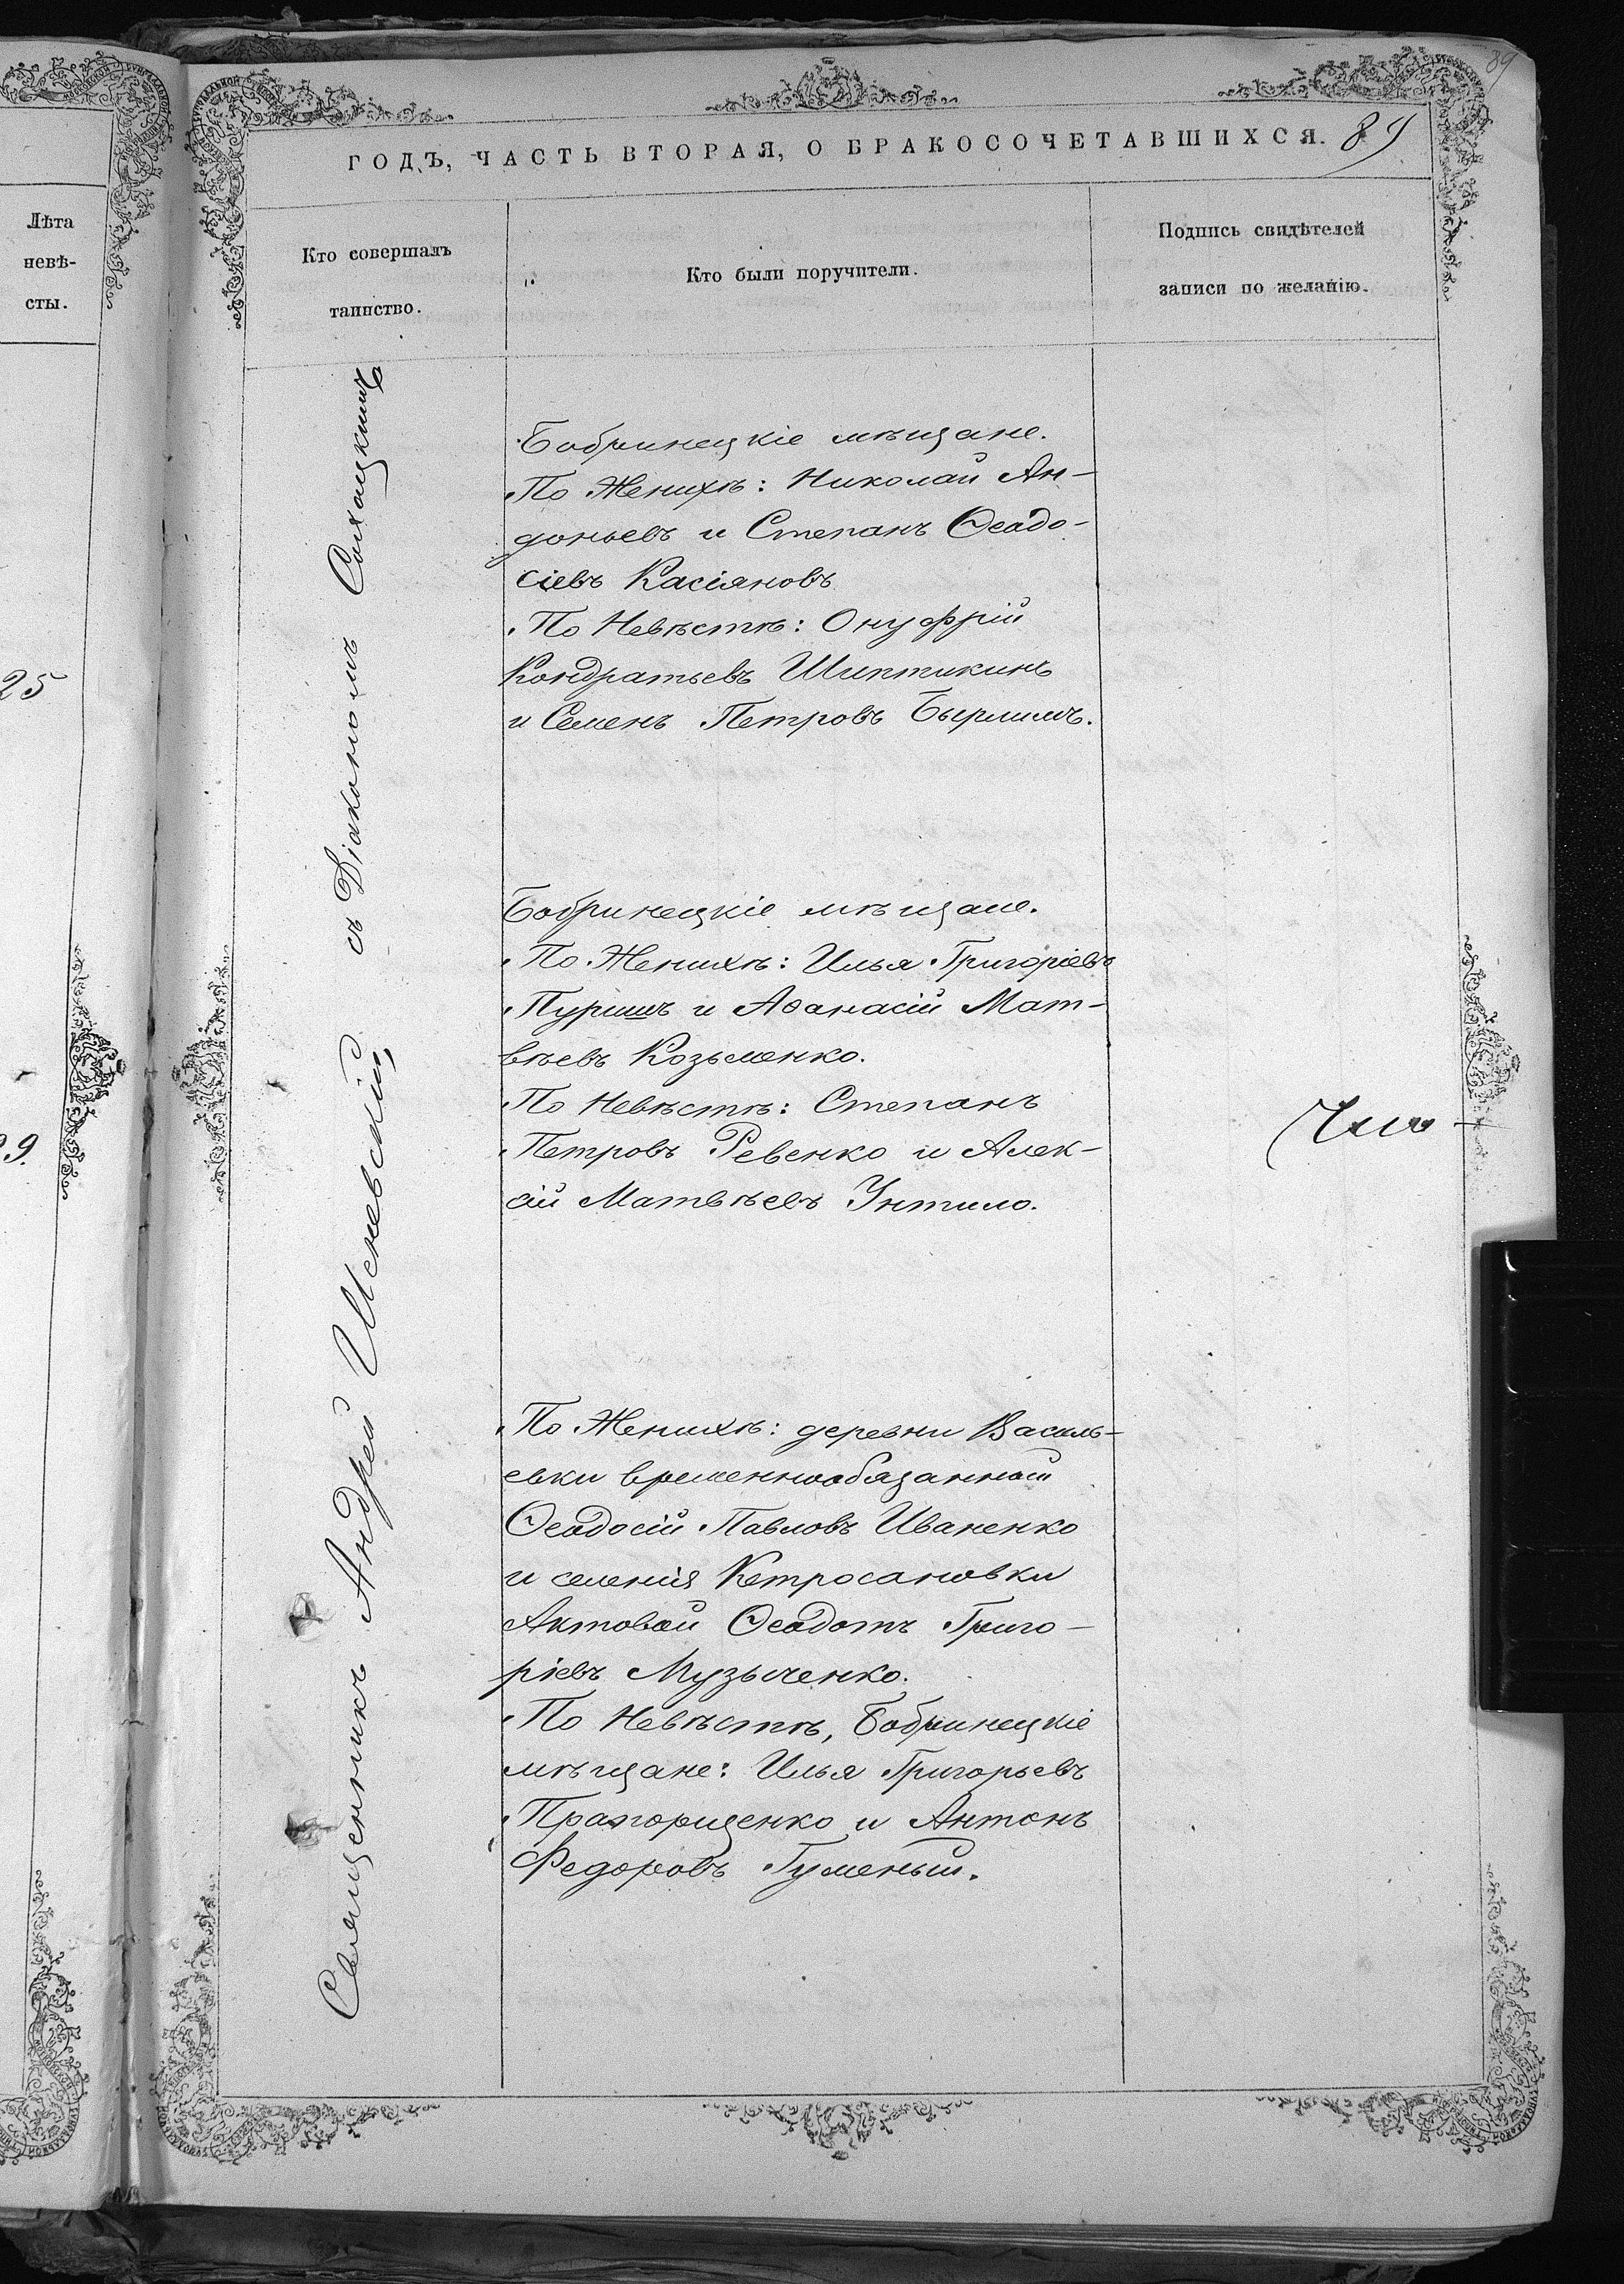 89
ГОДЪ, ЧАСТЬ ВТОРАЯ, О БРАКОСОЧЕТАВШИХСЯ. 89
Лѣта
невѣ-
сты.
25
9.
Кто совершалъ
таинство.
Кто были поручители.
Подпись свидѣтелей
записи по желанію.
Священникъ Андрей съ Діакономъ
Бобринецкіе мѣщане.
По Женихѣ: Николай Ан-
доньевъ и Степанъ Ѳеадо-
сіевъ Касіяновъ
По Невѣстѣ: Онуфрій
Кондратьевъ Шиптикинъ
и Семенъ Петровъ
Бобринецкіе мѣщане.
По Женихѣ: Илья Григоріевъ
Пуришъ и Аѳанасій Мат-
вѣевъ Козьменко.
По Невѣстѣ: Степанъ
Петровъ Ревенко и Алек-
сій Матвѣевъ Унтило.
По Женихѣ: деревни Василь-
евки временнообязанной
Ѳеадосій Павловъ Иваненко
и селенія Кетросановки
Актовой Ѳеадотъ Григо-
ріевъ Музыченко.
По Невѣстѣ, Бобринецкіе
мѣщане: Илья Григорьевъ
Прапорщенко и Антонъ
Федоровъ Гуменый.